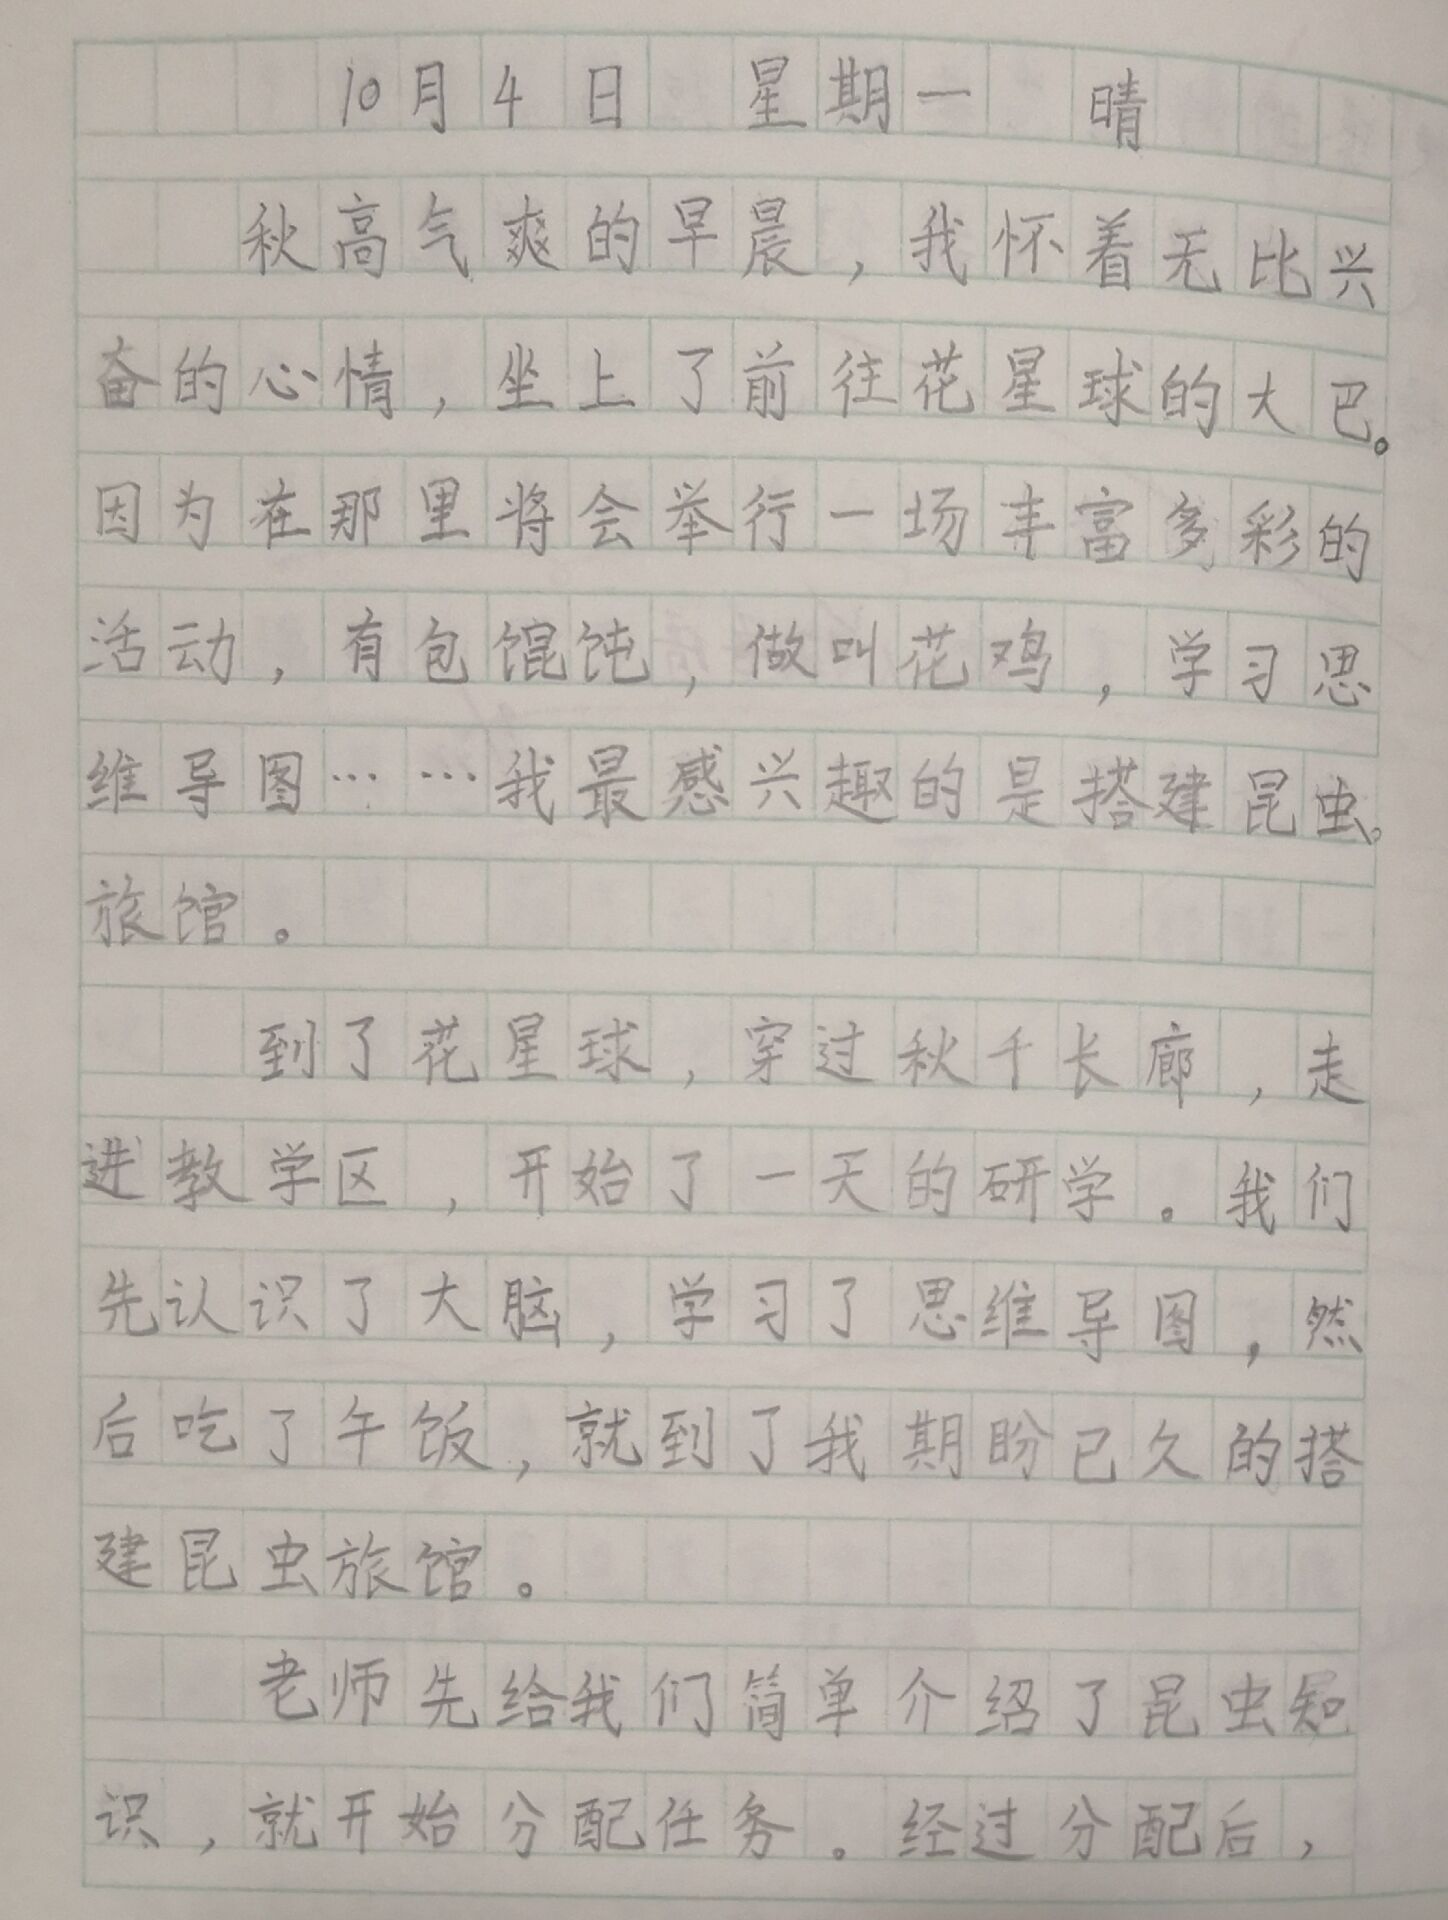 10月4日 星期一 晴
秋高气爽的早晨，我怀着无比兴
奋的心情，坐上了前往花星球的大巴。
因为在那里将会举行一场丰富多彩的
活动，有包馄饨，做叫花鸡，学习思
维导图……我最感兴趣的是搭建昆虫。
旅馆。
到了花星球，穿过秋千长廊，走
进教学区，开始了一天的研学。我们
先认识了大脑，学习了思维导图，然
后吃了午饭，就到了我期盼已久的搭
建昆虫旅馆。
老师先给我们简单介绍了昆虫知
识，就开始分配任务。经过分配后，